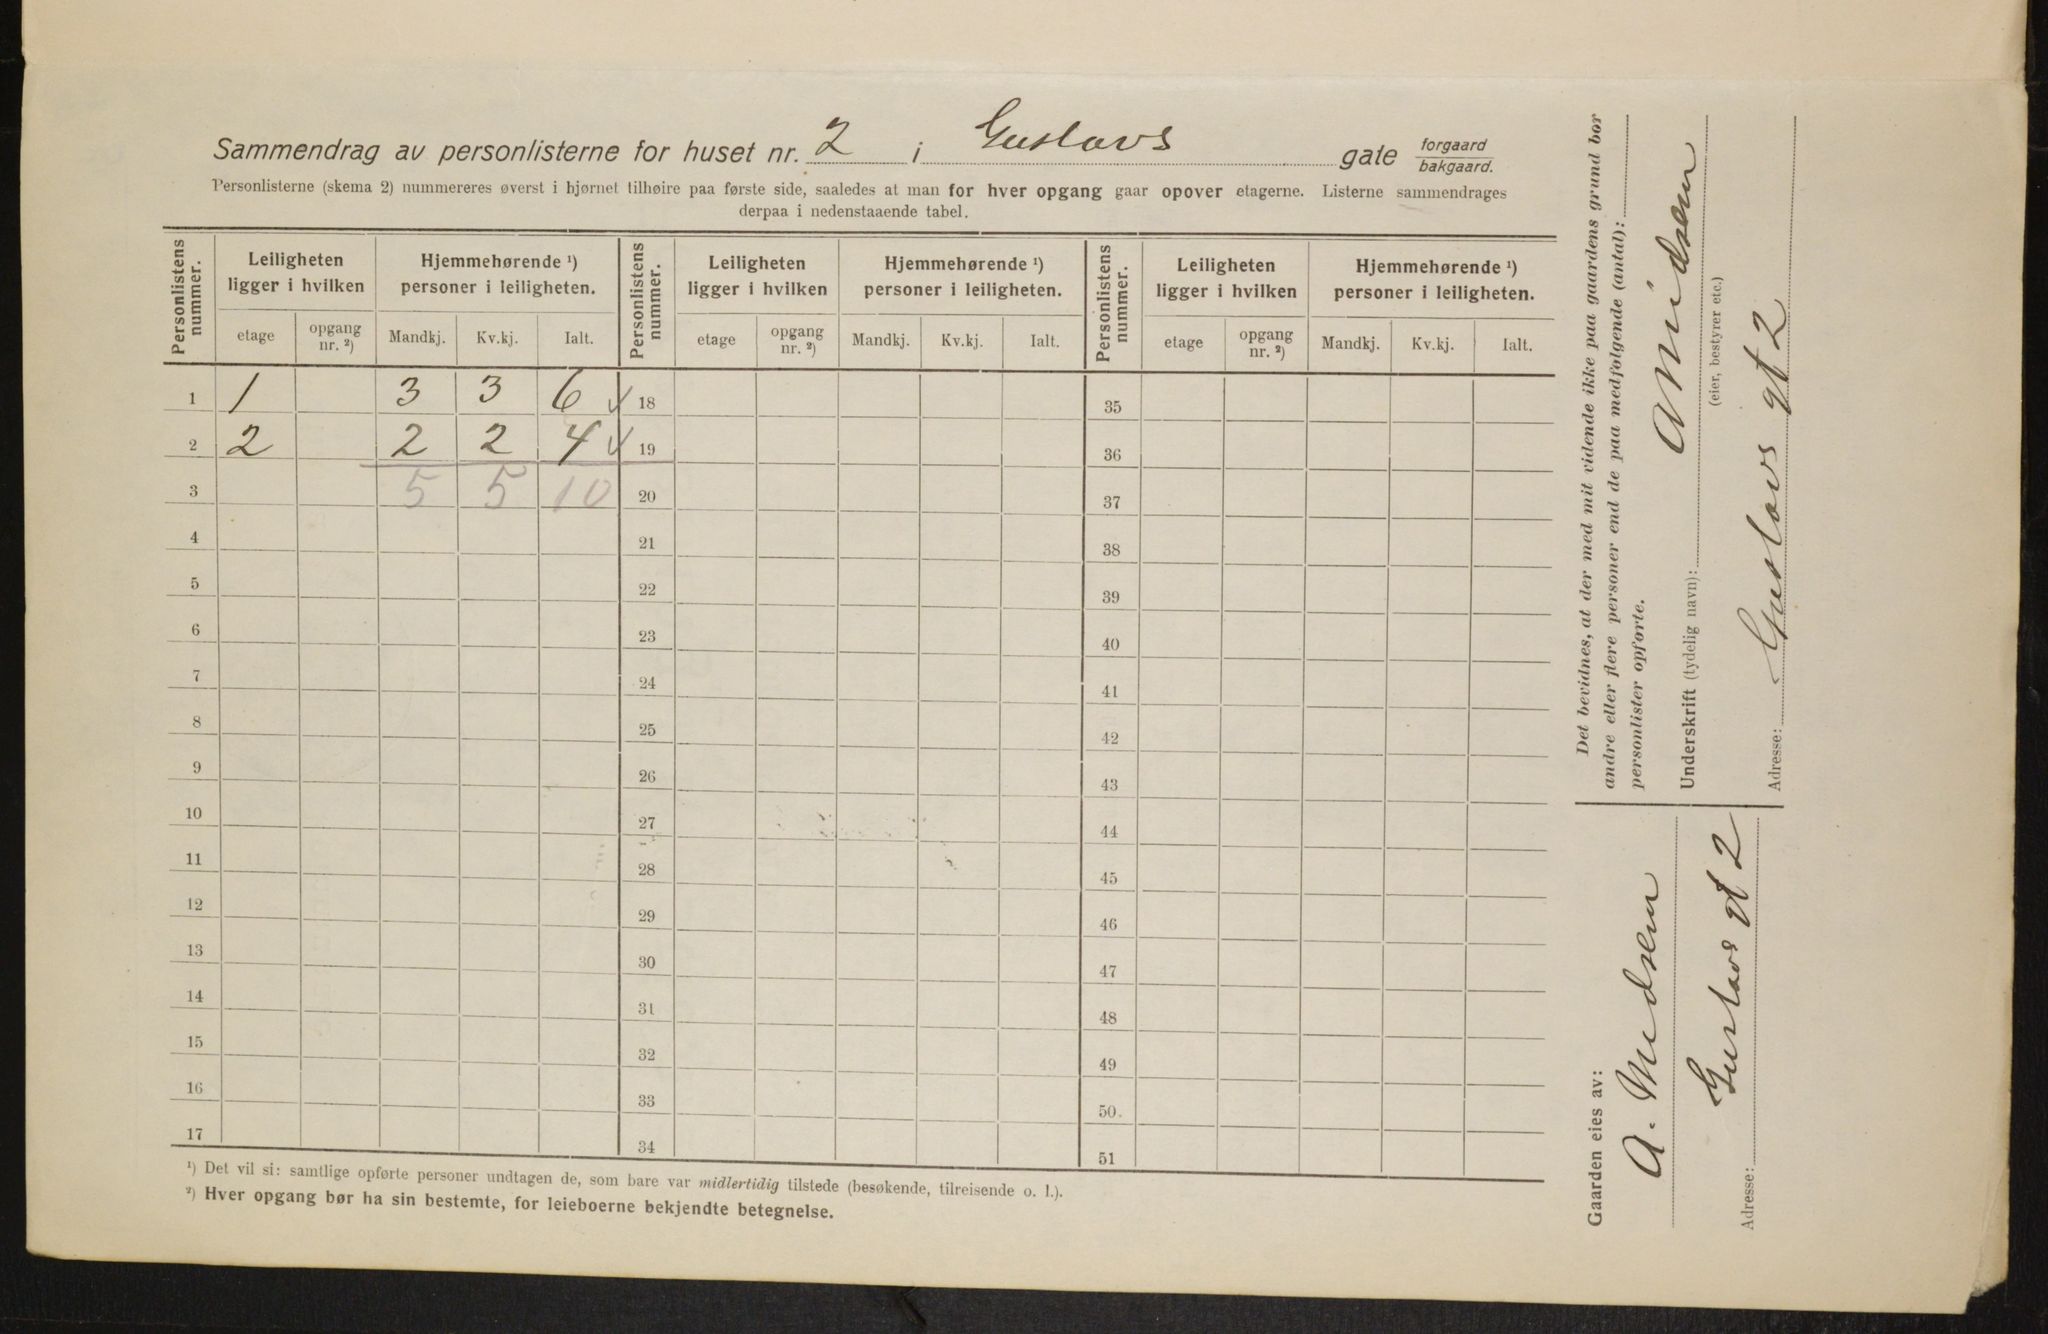 Sammendrag av personlisterne for huset nr. 2 i Gustavs gate forgaard
bakgaard.
Personlisterne (skema 2) nummereres øverst i hjørnet tilhøire paa første side, saaledes at man for hver opgang gaar opover etagerne. Listerne sammendrages
derpaa i nedenstaaende tabel.
Personlistens nummer. Leiligheten ligger i hvilken Hjemmehørende ¹) personer i leiligheten. Personlistens nummer. Leiligheten ligger i hvilken Hjemmehørende ¹) personer i leiligheten. Personlistens nummer. Leiligheten ligger i hvilken Hjemmehørende ¹) personer i leiligheten.
etage opgang nr. ²) Mandkj. Kv.kj. Ialt. etage opgang nr. ²) Mandkj. Kv.kj. Ialt. etage opgang nr. ²) Mandkj. Kv.kj. Ialt.
1 1 3 3 6 18 35
2 2 2 2 4 19 36
3 5 5 10 20 37
4 21 38
5 22 39
6 23 40
7 24 41
8 25 42
9 26 43
10 27 44
11 28 45
12 29 46
13 30 47
14 31 48
15 32 49
16 33 50.
17 34 51
¹) Det vil si: samtlige opførte personer undtagen de, som bare var midlertidig tilstede (besøkende, tilreisende o. l.).
²) Hver opgang bør ha sin bestemte, for leieboerne bekjendte betegnelse.
Det bevidnes, at der med mit vidende ikke paa gaardens grund bor
andre eller flere personer end de paa medfølgende (antal):
personlister opførte.
Underskrift (tydelig navn):
(eier, bestyrer etc.)
Adresse: Gustavs gt 2
Gaarden eies av:
Adresse: Gustavs gt 2